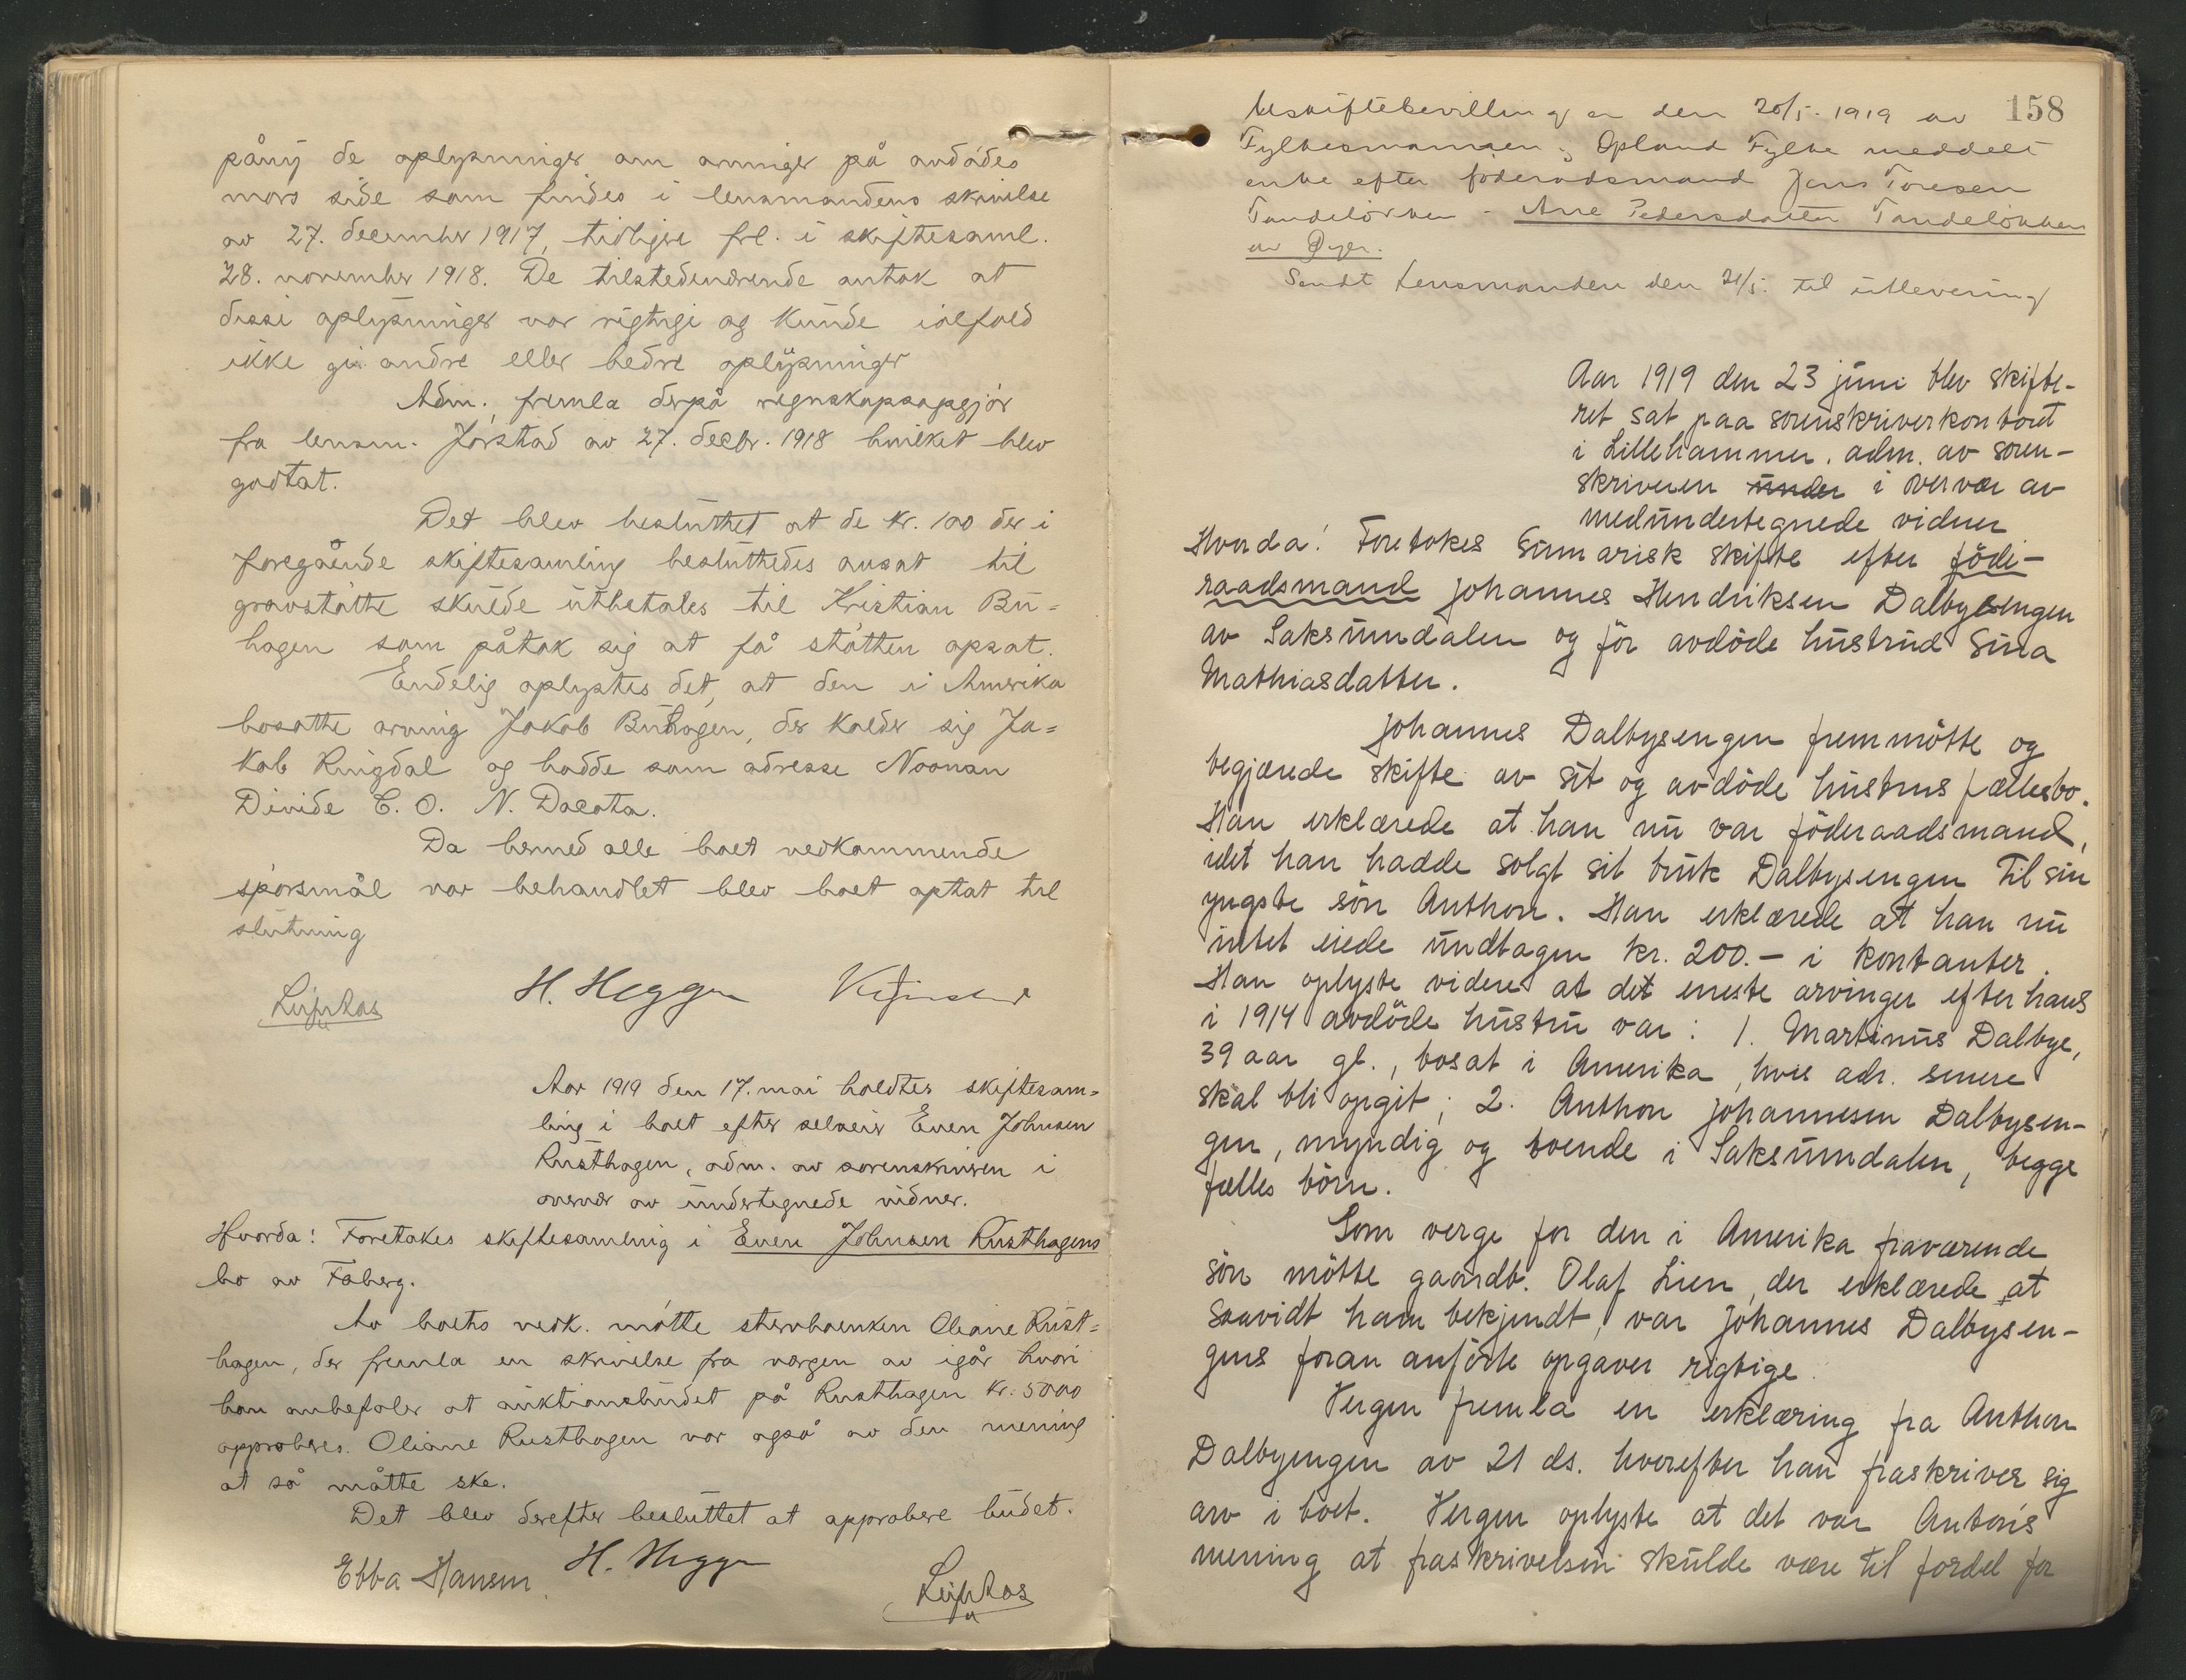 påny de oplysninger om arvinger på avdødes
mors side som findes i lensmandens skrivelse
av 27. december 1917, tidligere frl. i skiftesaml.
28. november 1918. De tilstedeværende antok at
disse oplysninger var rigtige og kunde ialfald
ikke gi andre eller bedre oplysninger
Adm. fremla derpå regnskapsopgjør
fra lensm. Jørstad av 27. decbr. 1918 hvilket blev
godtat.
Det blev besluttet at de kr. 100 der i
foregående skiftesamling besluttedes ansat til
gravstøtte skulde utbetales til Kristian Bu=
hagen som påtok sig at få støtten opsat.
Endelig oplystes det, at den i Amerika
bosatte arving Jakob Buhagen, der kalder sig Ja=
kob Ringdal og hadde som adresse Noonan
Divide C. O. N. Dacota.
Da hermed alle boet vedkommende
spørsmål var behandlet blev boet optat til
slutning
H. Hegge
Aar 1919 den 17. mai holdtes skiftesam=
ling i boet efter selveier Even Johnsen
Rusthagen, adm. av sorenskriveren i
overvær av undertegnede vidner.
Hvorda! Foretokes skiftesamling i Even Johnsen Rusthagens
bo av Faberg.
Av boets vedk. møtte stervboenken Oliane Rust=
hagen, der fremla en skrivelse fra vergen av igår hvori
han anbefaler at auktionsbudet på Rusthagen kr. 5000
approberes. Oliane Rusthagen var også av den mening
at så måtte ske.
Det blev derefter besluttet at approbere budet.
Ebba Hansen H. Hegge
158
Uskiftebevilling er den 20/5 - 1919 av
Fylkesmannen i Opland Fylke meddelt
enke efter føderådsmand Jens Toresen
Tandeløkken - Ane Pedersdatter Tandeløkken
av Øyer.
Sendt Lensmanden den 21/5. til utlevering
Aar 1919 den 23 juni blev skifte-
ret sat paa sorenskriverkontoret
i Lillehammer. adm. av soren-
skriveren under i overvær av
medundertegnede vidner
Hvorda! Foretokes Sumarisk skifte efter föde-
raadsmand Johannes Hendriksen Dalbysengen
av Saksumdalen og för avdöde hustrud Sina
Mathiasdatter.
Johannes Dalbysengen fremmötte og
begjærede skifte av sit og avdöde hustrus fællesbo.
Han erklærede at han nu var föderaadsmand,
idet han hadde solgt sit bruk Dalbysengen til sin
yngste sön Anthon. Han erklærede at han nu
intet eiede undtagen kr. 200.- i kontanter.
Han oplyste videre at det eneste arvinger efter hans
i 1914 avdöde hustru var: 1. Martinus Dalbye,
39 aar gl., bosat i Amerika, hvis adr. senere
skal bli opgit; 2. Anthon Johannesen Dalbysen-
gen, myndig og boende i Saksumdalen, begge
fælles börn.
Som verge for den i Amerika fraværende
sön mötte gaardbr. Olaf Lien, der erklærede at
saavidt ham bekjendt, var Johannes Dalbysen-
gens foran anförte opgaver rigtige.
Vergen fremla en erklæring fra Anthon
Dalbyengen av 21 ds. hvorefter han fraskriver sig
arv i boet. Vergen oplyste at det var Anton's
mening at fraskrivelsen skulde være til fordel for